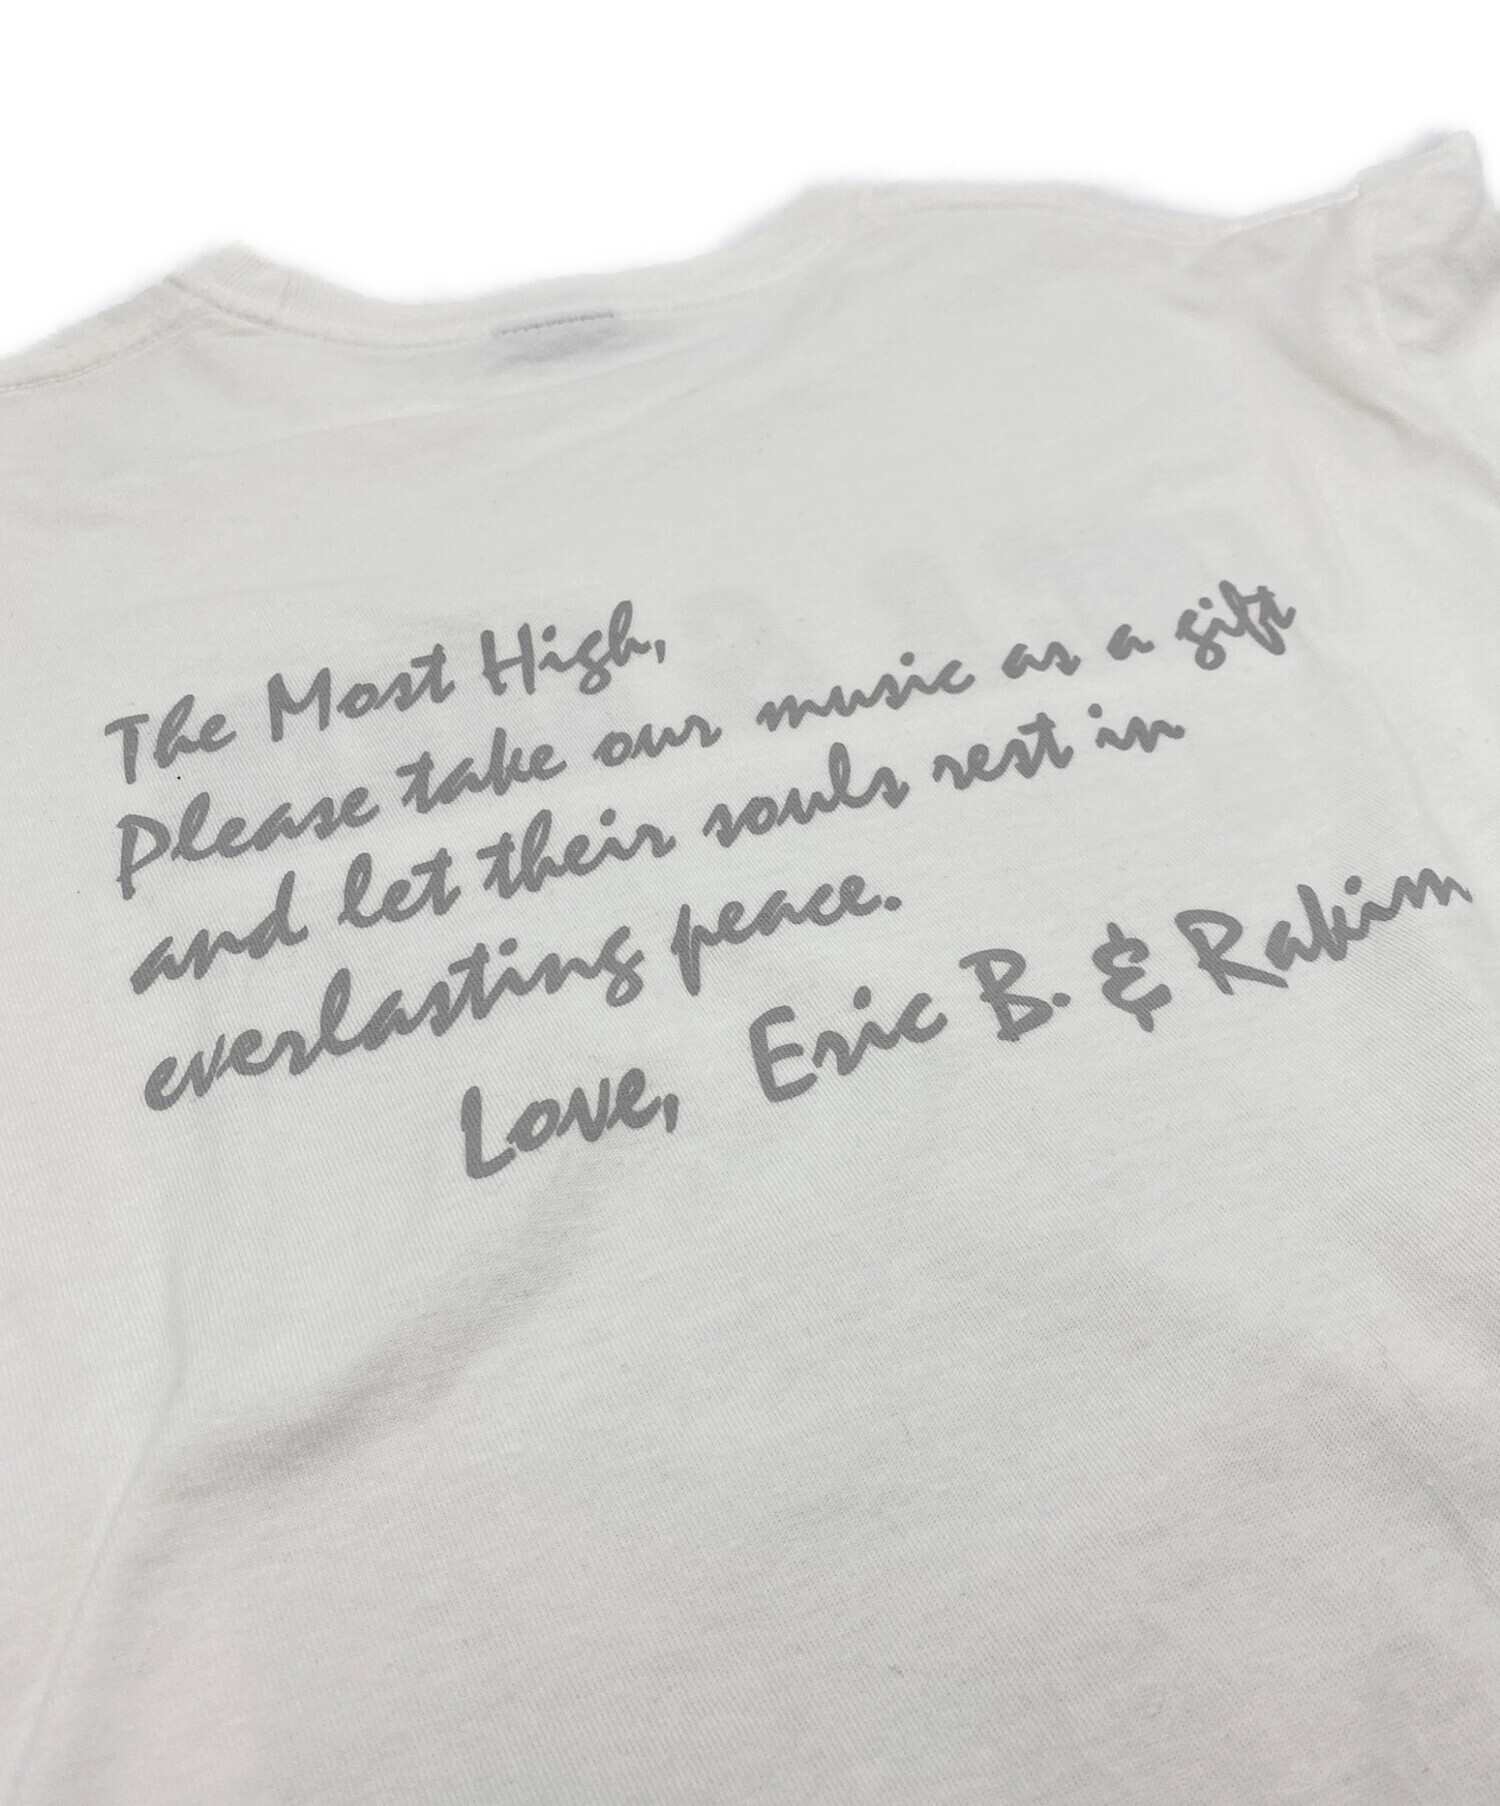 The Most High,
Please take our music as a gift
and let their souls rest in
everlasting peace.
Love, Eric B. & Rakim